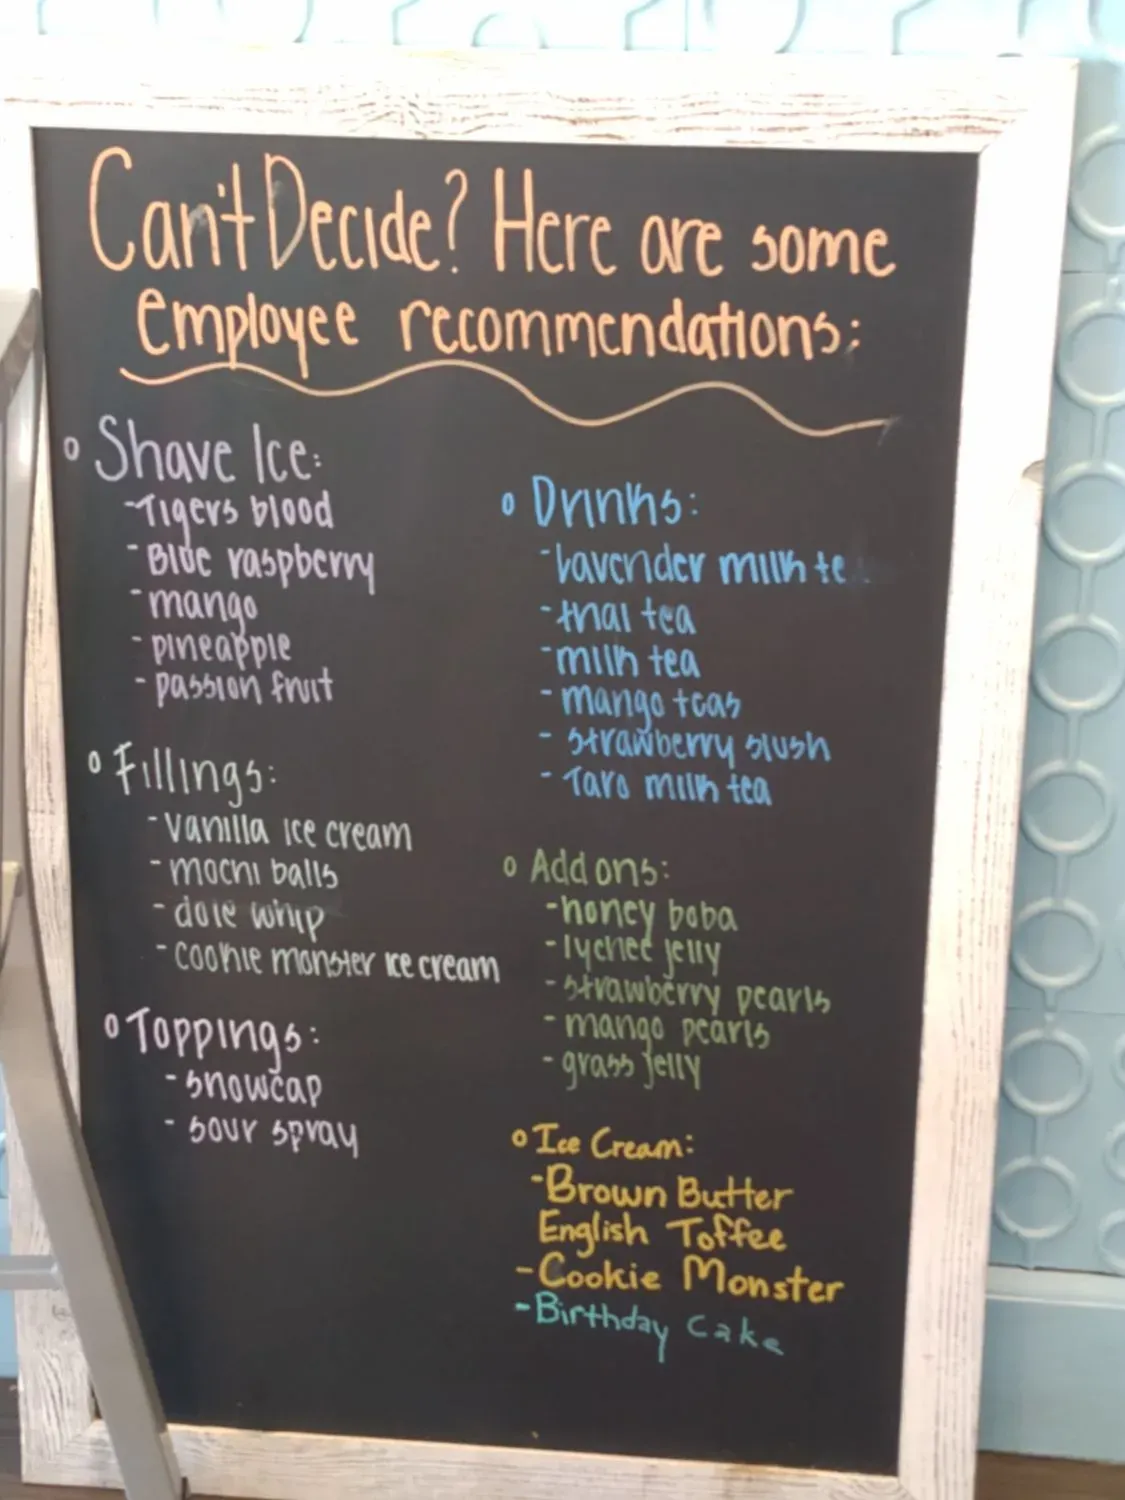 Can't Decide? Here are some
employee recommendations:
o Shave Ice:
-Tigers blood
-Blue raspberry
-mango
-pineapple
-passion fruit
o Fillings:
-vanilla ice cream
-mochi balls
-dole whip
-cookie monster ice cream
o Toppings:
-snowcap
-sour spray
o Drinks:
-lavender milk te
-thai tea
-milk tea
-mango teas
-strawberry slush
-Taro milk tea
o Add ons:
-honey boba
-lychee jelly
-strawberry pearls
-mango pearls
-grass jelly
o Ice Cream:
-Brown Butter
English Toffee
-Cookie Monster
-Birthday Cake